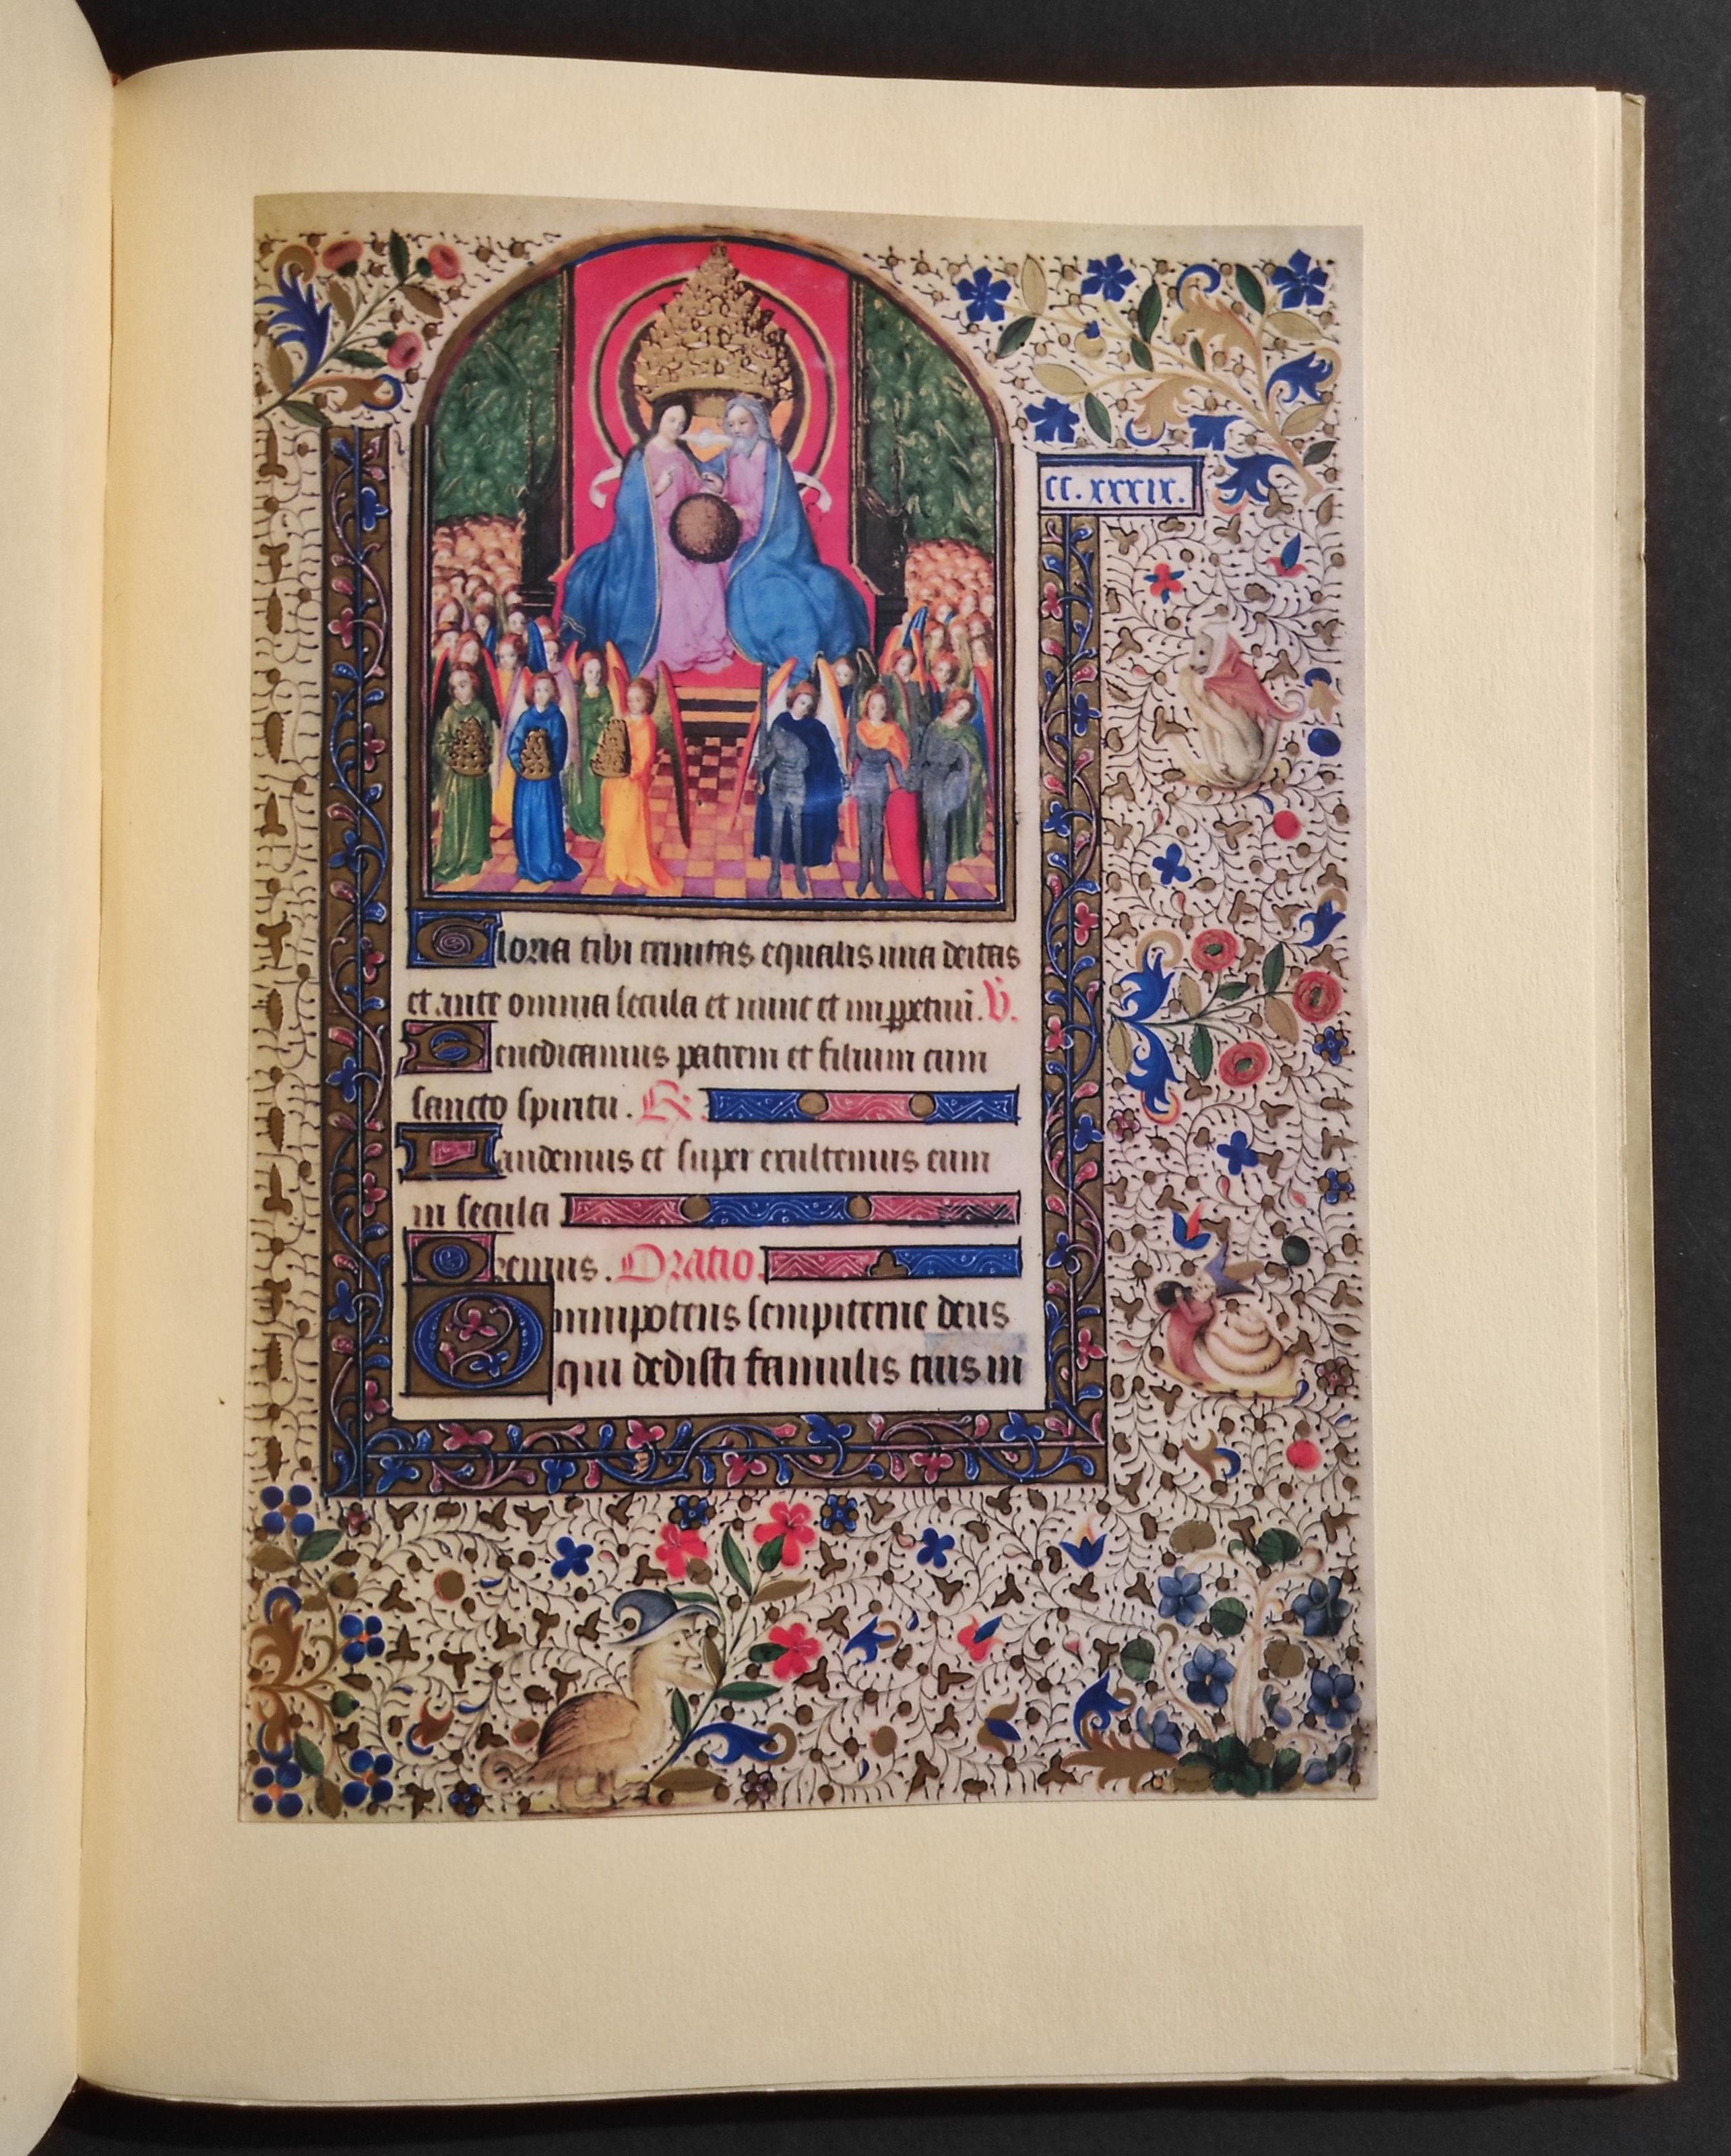 cc.xxxix.
Gloria tibi trinitas equalis una deitas
et ante omnia secula et nunc et in ppetuū. V̄.
Benedicamus patrem et filium cum
sancto spiritu. R.
Laudemus et super exultemus eum
in secula
Oremus. Oratio.
Omnipotens sempiterne deus
qui dedisti famulis tuis in